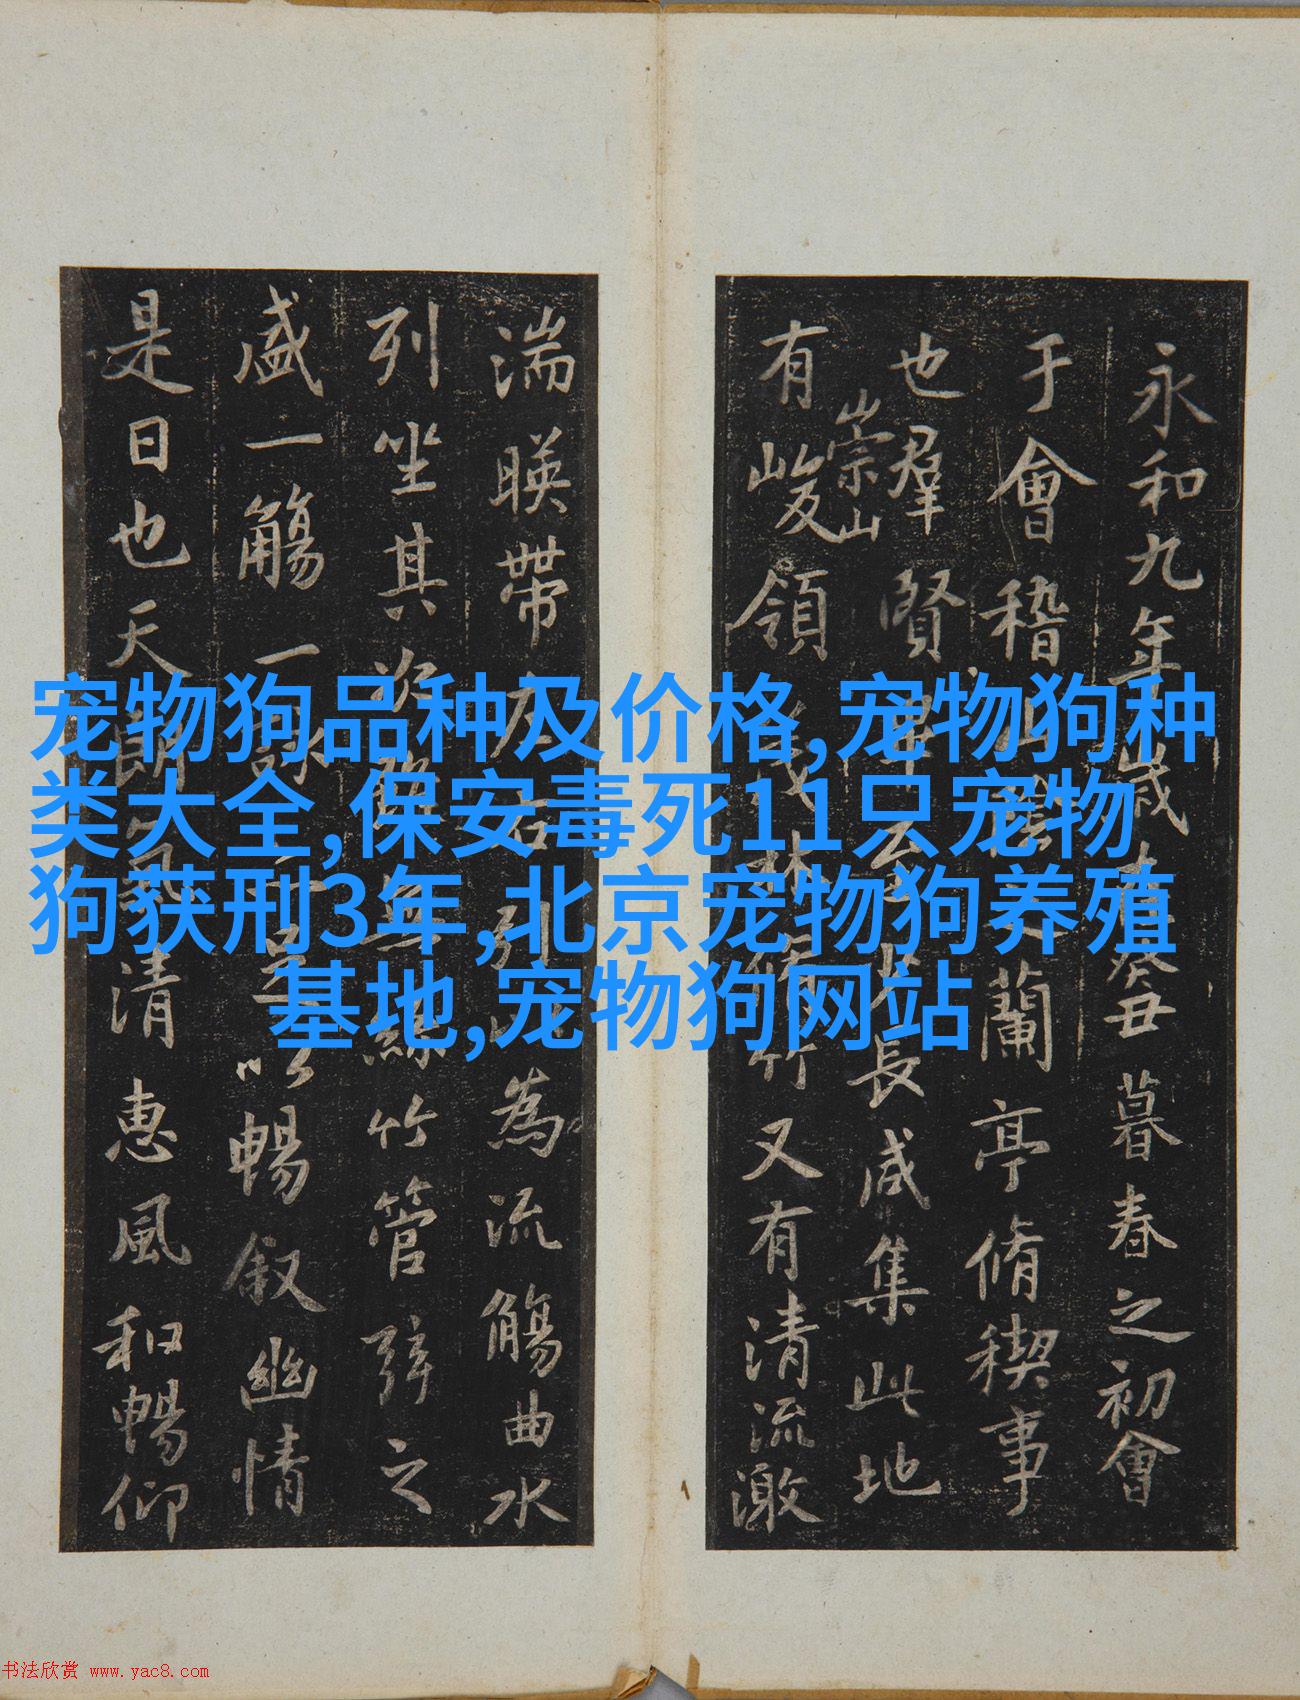 永和九年歲在癸丑暮春之初會
于會稽山陰之蘭亭脩禊事
也羣賢畢至少長咸集此地
有崇山峻領茂林脩竹又有清流激
湍暎帶左右引以為流觴曲水
列坐其次雖無絲竹管弦之
盛一觴一詠亦足以暢叙幽情
是日也天朗氣清惠風和暢仰
宠物狗品种及价格,宠物狗种
类大全,保安毒死11只宠物
狗获刑3年,北京宠物狗养殖
基地,宠物狗网站
书法欣赏 www.yac8.com